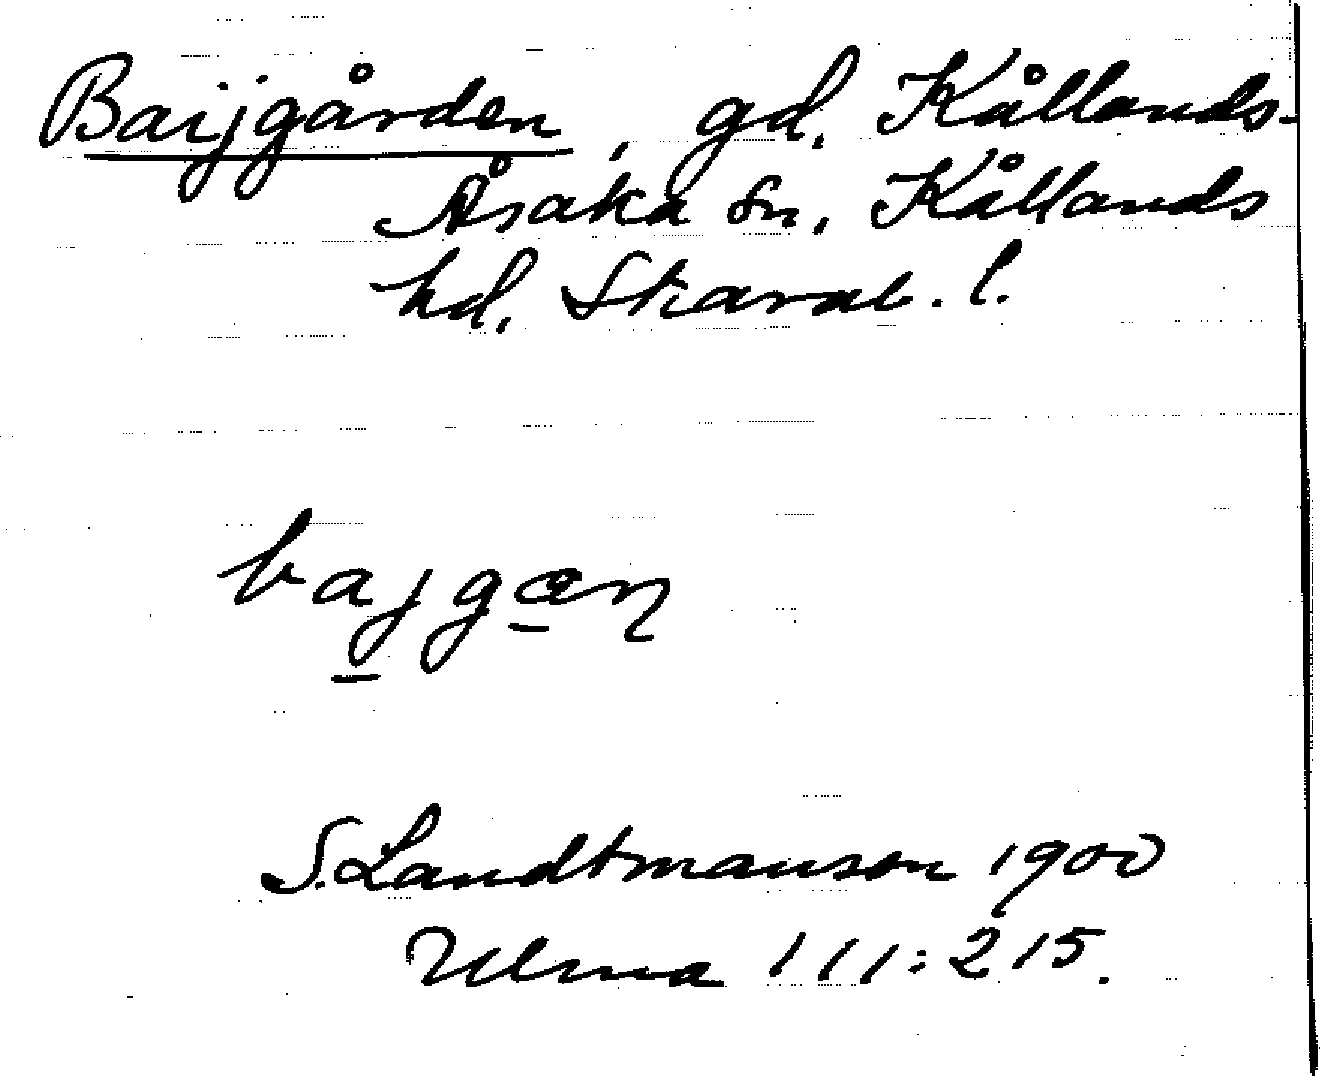 Baijgården, gd. Kållands-
Åsaka sn, Kållands
hd. Skarab. l.
bajgæn
S. Landtmanson 1900
Ulma 111:215.